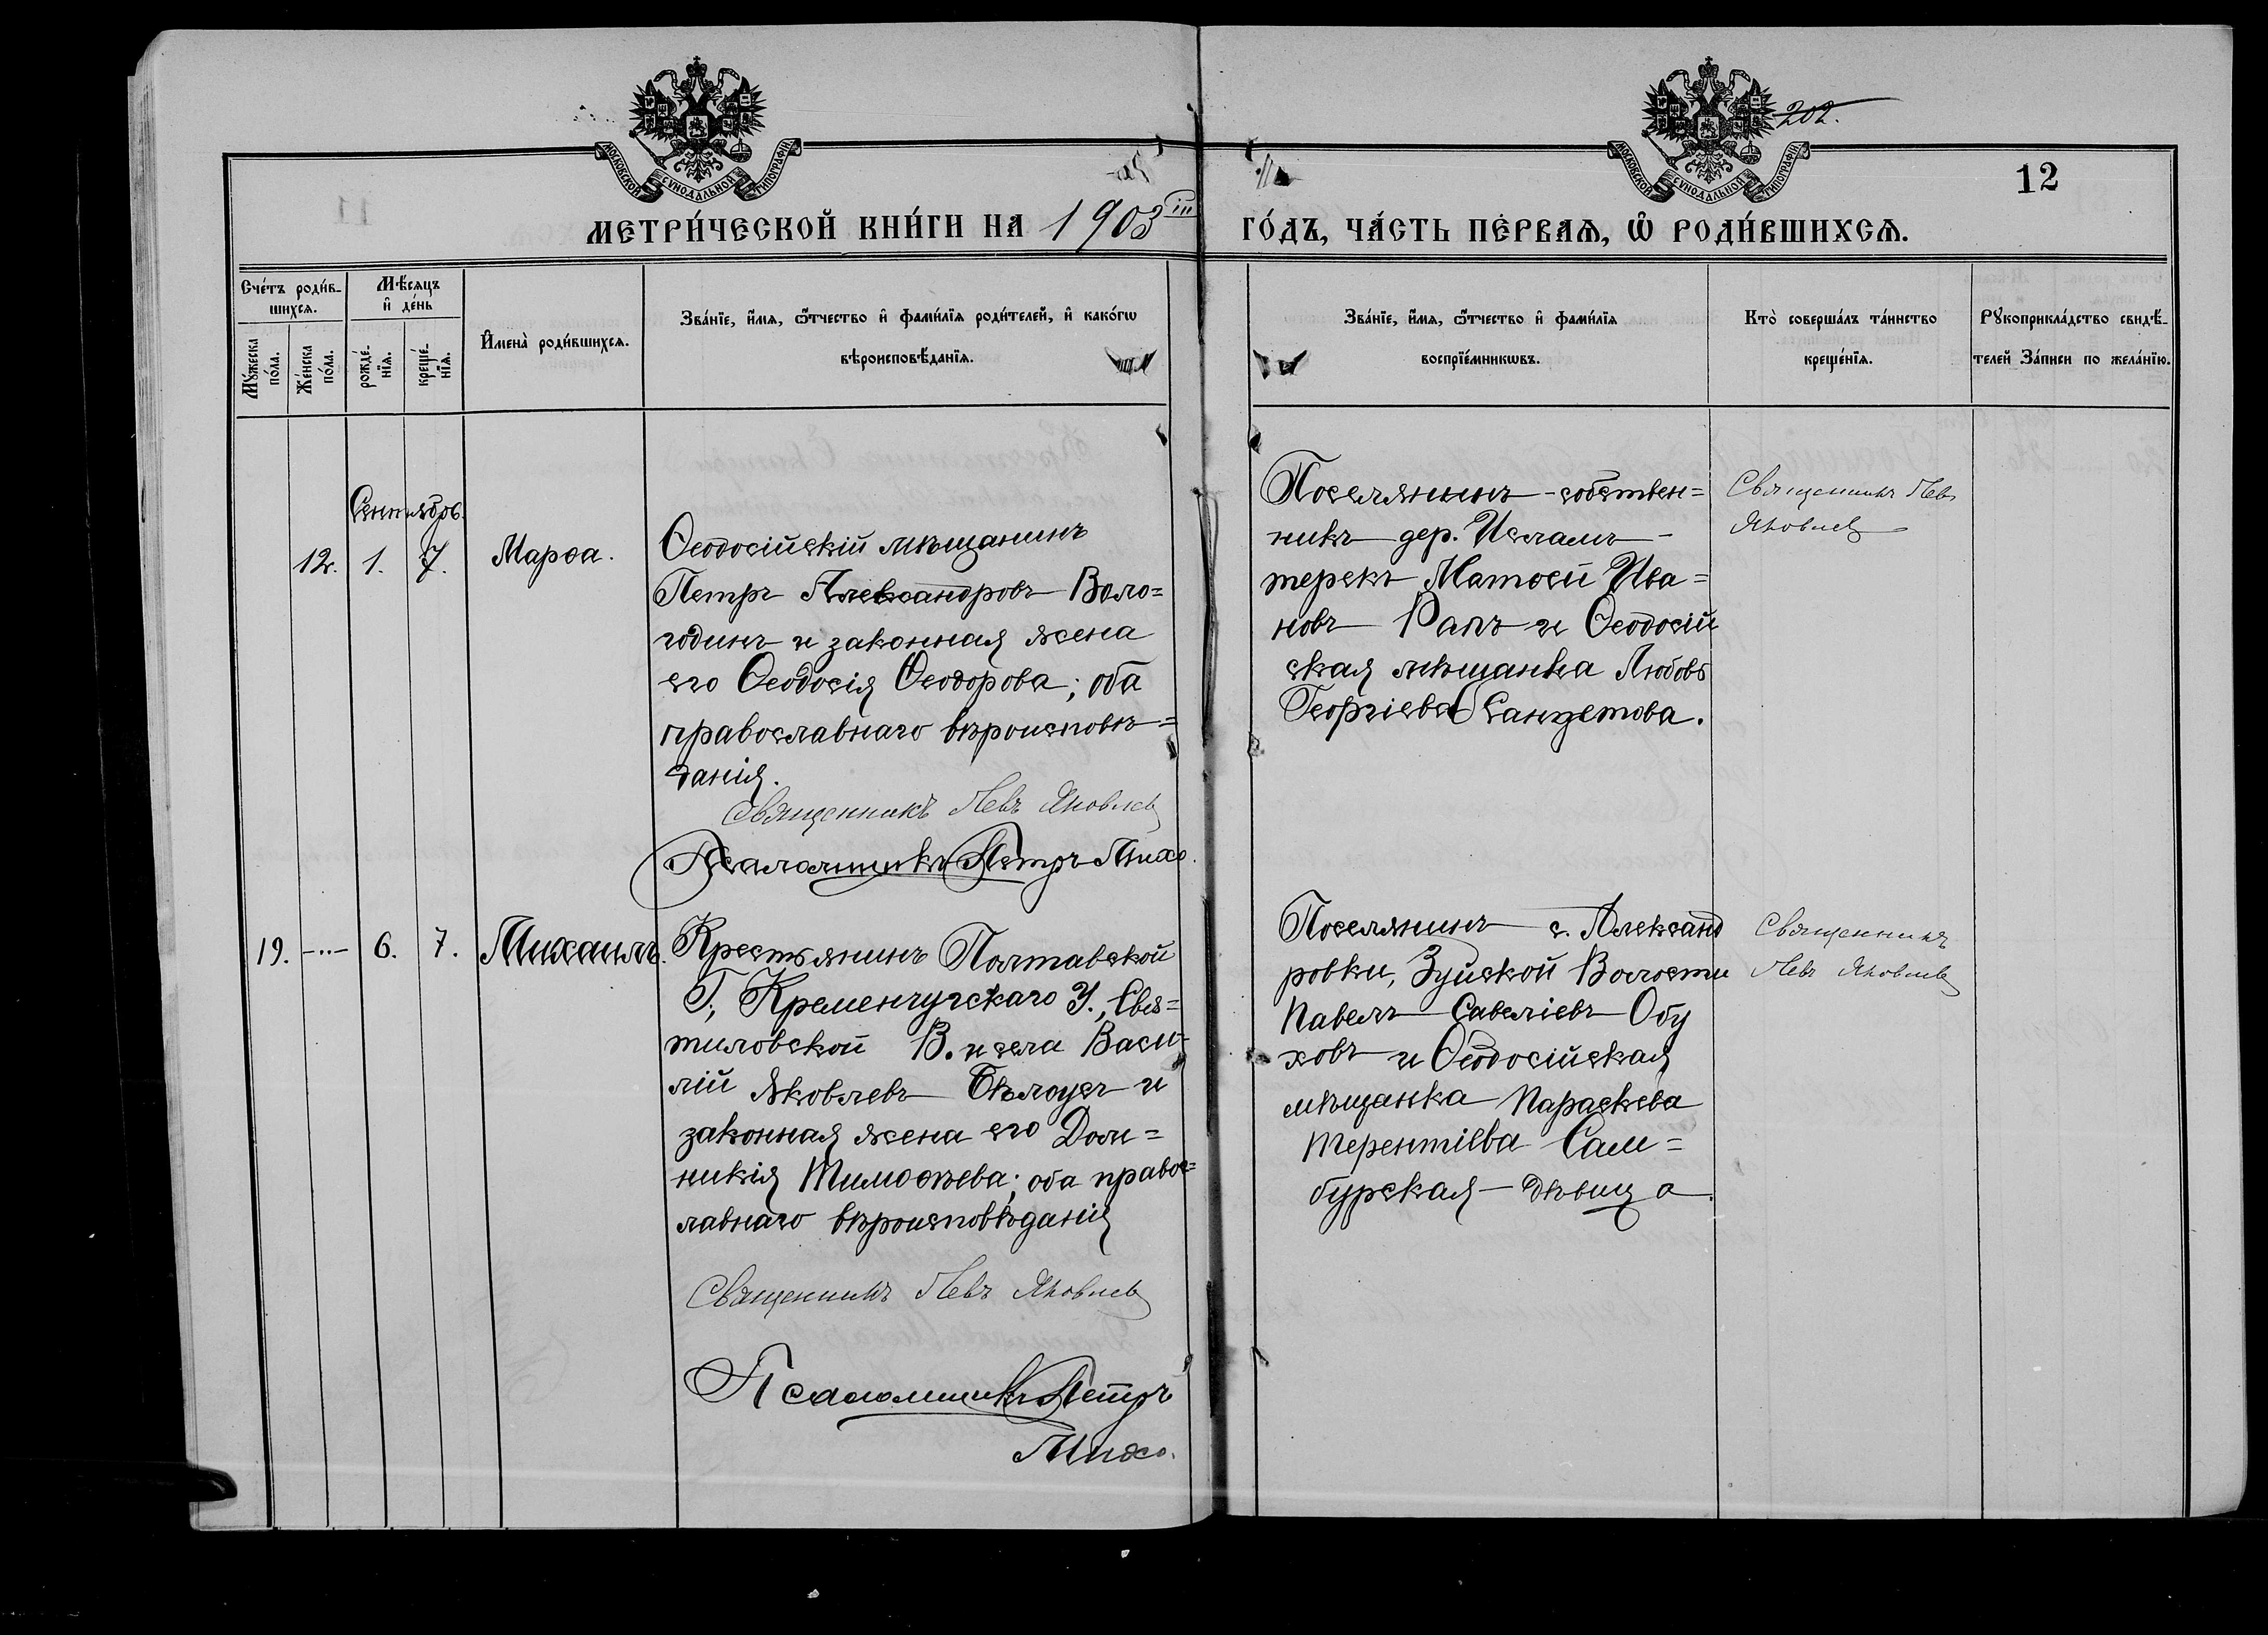 МОСКОВСКОЙ СѴНОДАЛЬНОЙ ТИПОГРАФІИ
МОСКОВСКОЙ СѴНОДАЛЬНОЙ ТИПОГРАФІИ
202.
12
МЕТРИ́ЧЕСКОЙ КНИ́ГИ НА 1903 iй ГО́ДЪ, ЧА́СТЬ ПЕ́РВАѦ, Ѿ РОДИ́ВШИХСѦ.
Сче́тъ роди́в-
шихсѧ.
Мꙋ́жеска
по́ла.
Же́нска
по́ла.
Мѣ́сѧцъ
и҆ де́нь
рожде́-
нїѧ.
креще́-
нїѧ.
И҆мена̀ роди́вшихсѧ.
Зва́нїе, и҆́мѧ, ѻ҆́тчество и҆ фами́лїѧ роди́телей, и҆ како́гѡ
вѣроисповѣ́данїѧ.
Зва́нїе, и҆́мѧ, ѻ҆́тчество и҆ фами́лїѧ
воспрїе́мникѡвъ.
Кто̀ соверша́лъ та́инство
креще́нїѧ.
Рꙋкоприкла́дство свидѣ́-
телей За́писи по жела́нїю.
Сентябрь.
12. 1. 7. Марѳа.
Ѳеодосійскій мѣщанинъ
Петръ Александровъ Воло=
годинъ и законная жена
его Ѳеодосія Ѳеодорова; оба
православнаго вѣроисповѣ=
данія.
Священникъ Левъ Яковлев
Псаломщикъ Петръ Михо.
Поселянинъ-собствен=
никъ дер. Исламъ-
терекъ Матѳей Ива=
новъ Рапъ и Ѳеодосій
ская мѣщанка Любовь
Георгіева Сандетова.
Священникъ Левъ
Яковлев
19. -··- 6. 7. Михаилъ.
Крестьянинъ Полтавской
Г., Кременчугскаго У., Свя=
тиловской В. и села Васи-
лій Яковлевъ Бѣлоусъ и
законная жена его Дом=
никія Тимоѳѣева; оба правос=
лавнаго вѣроисповѣданія
Священникъ Левъ Яковлев
Псаломщикъ Петръ
Михо.
Поселянинъ с. Александ
ровки, Зуйской Волости
Павелъ Савеліевъ Обу
ховъ и Ѳеодосійская
мѣщанка Параскева
Терентіева Сам=
бурская - дѣвица.
Священникъ
Левъ Яковлев